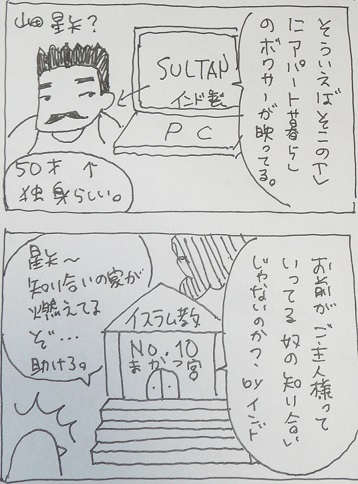 そういえばそこのTV
にアパート暮らし
のボクサーが映ってる。
SULTAN
インド製
PC
山田 星矢?
50才 ↑
独身らしい。
お前がご主人様って
いってる奴の知り合い
じゃないのかっ、byインド
イスラム教
No.10
まかつ宮
星矢〜
知り合いの家が
燃えてる
ぞ…
助けろ。